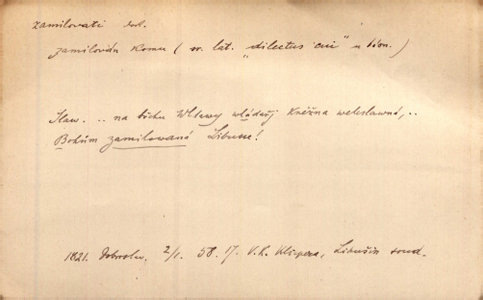 zamilovati dok.
zamilován komu (sr. lat. „dilectus cui" u básn.)
Slaw. .. na břehu Wltawy wládařj Kněžna weleslawná, ..
Bohům zamilowaná Libusse!
1821. Dobroslav. 2/1. 58. 17. V. K. Klicpera, Libušin soud.